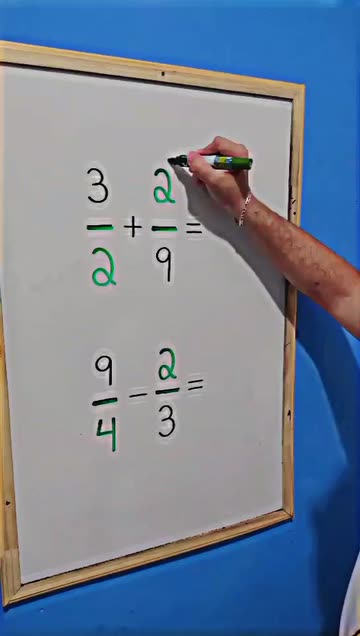 3/2 + 2/9 =
9/4 − 2/3 =